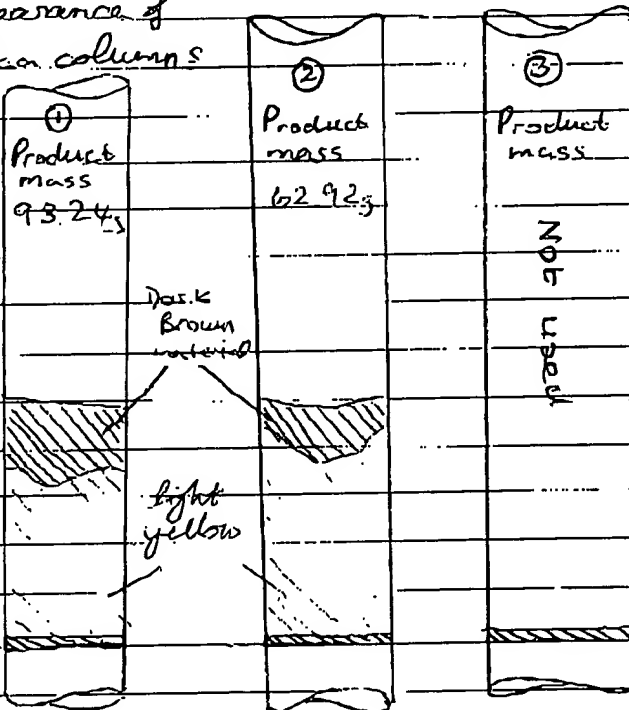 columns
①
Product
mass
93.24g
②
Product
mass
62.92g
③
Product
mass
Not used
Dark
Brown
material
light
yellow